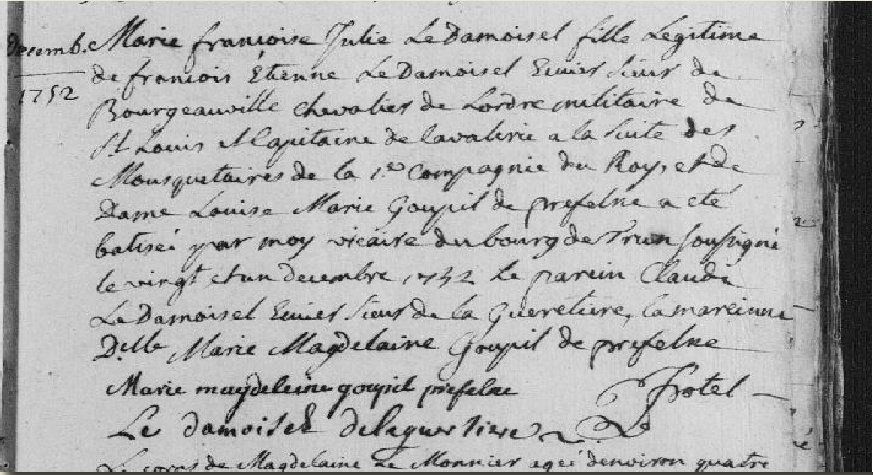 Decemb.
1752
Marie françoise Julie Le Damoisel fille Legitime
de francois Étienne Le Damoisel Ecuier Sieur de
Bourgeauville chevalier de Lordre militaire de
St Louis et Capitaine de Cavalerie a la Suite des
Mousquetaires de la 1re Compagnie du Roy, et de
Dame Louise Marie Goupil de prefelne a eté
batisée par moy vicaire du bourg de Trun soussigné
le vingt et un decembre 1752 le parein Claude
Le Damoisel Ecuier Sieur de la Queretiere, la mareinne
Delle Marie Magdelaine Goupil de prefelne
Marie magdeleine goupil prefelne
Le damoisel de laquertiere
Le corps de Magdelaine Le Monnier ageé denviron quatre